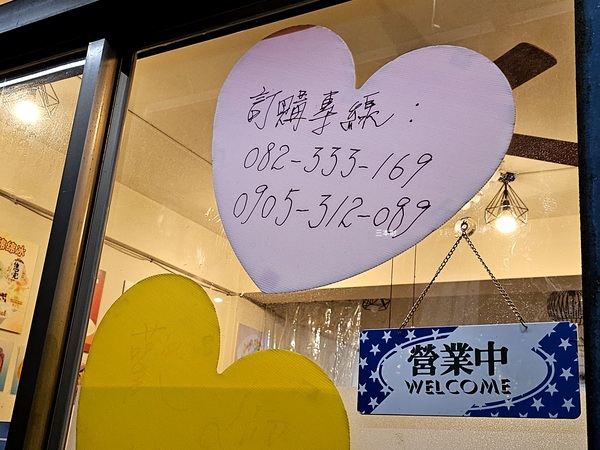 訂購專線：
082-333-169
0905-312-089
營業中
WELCOME